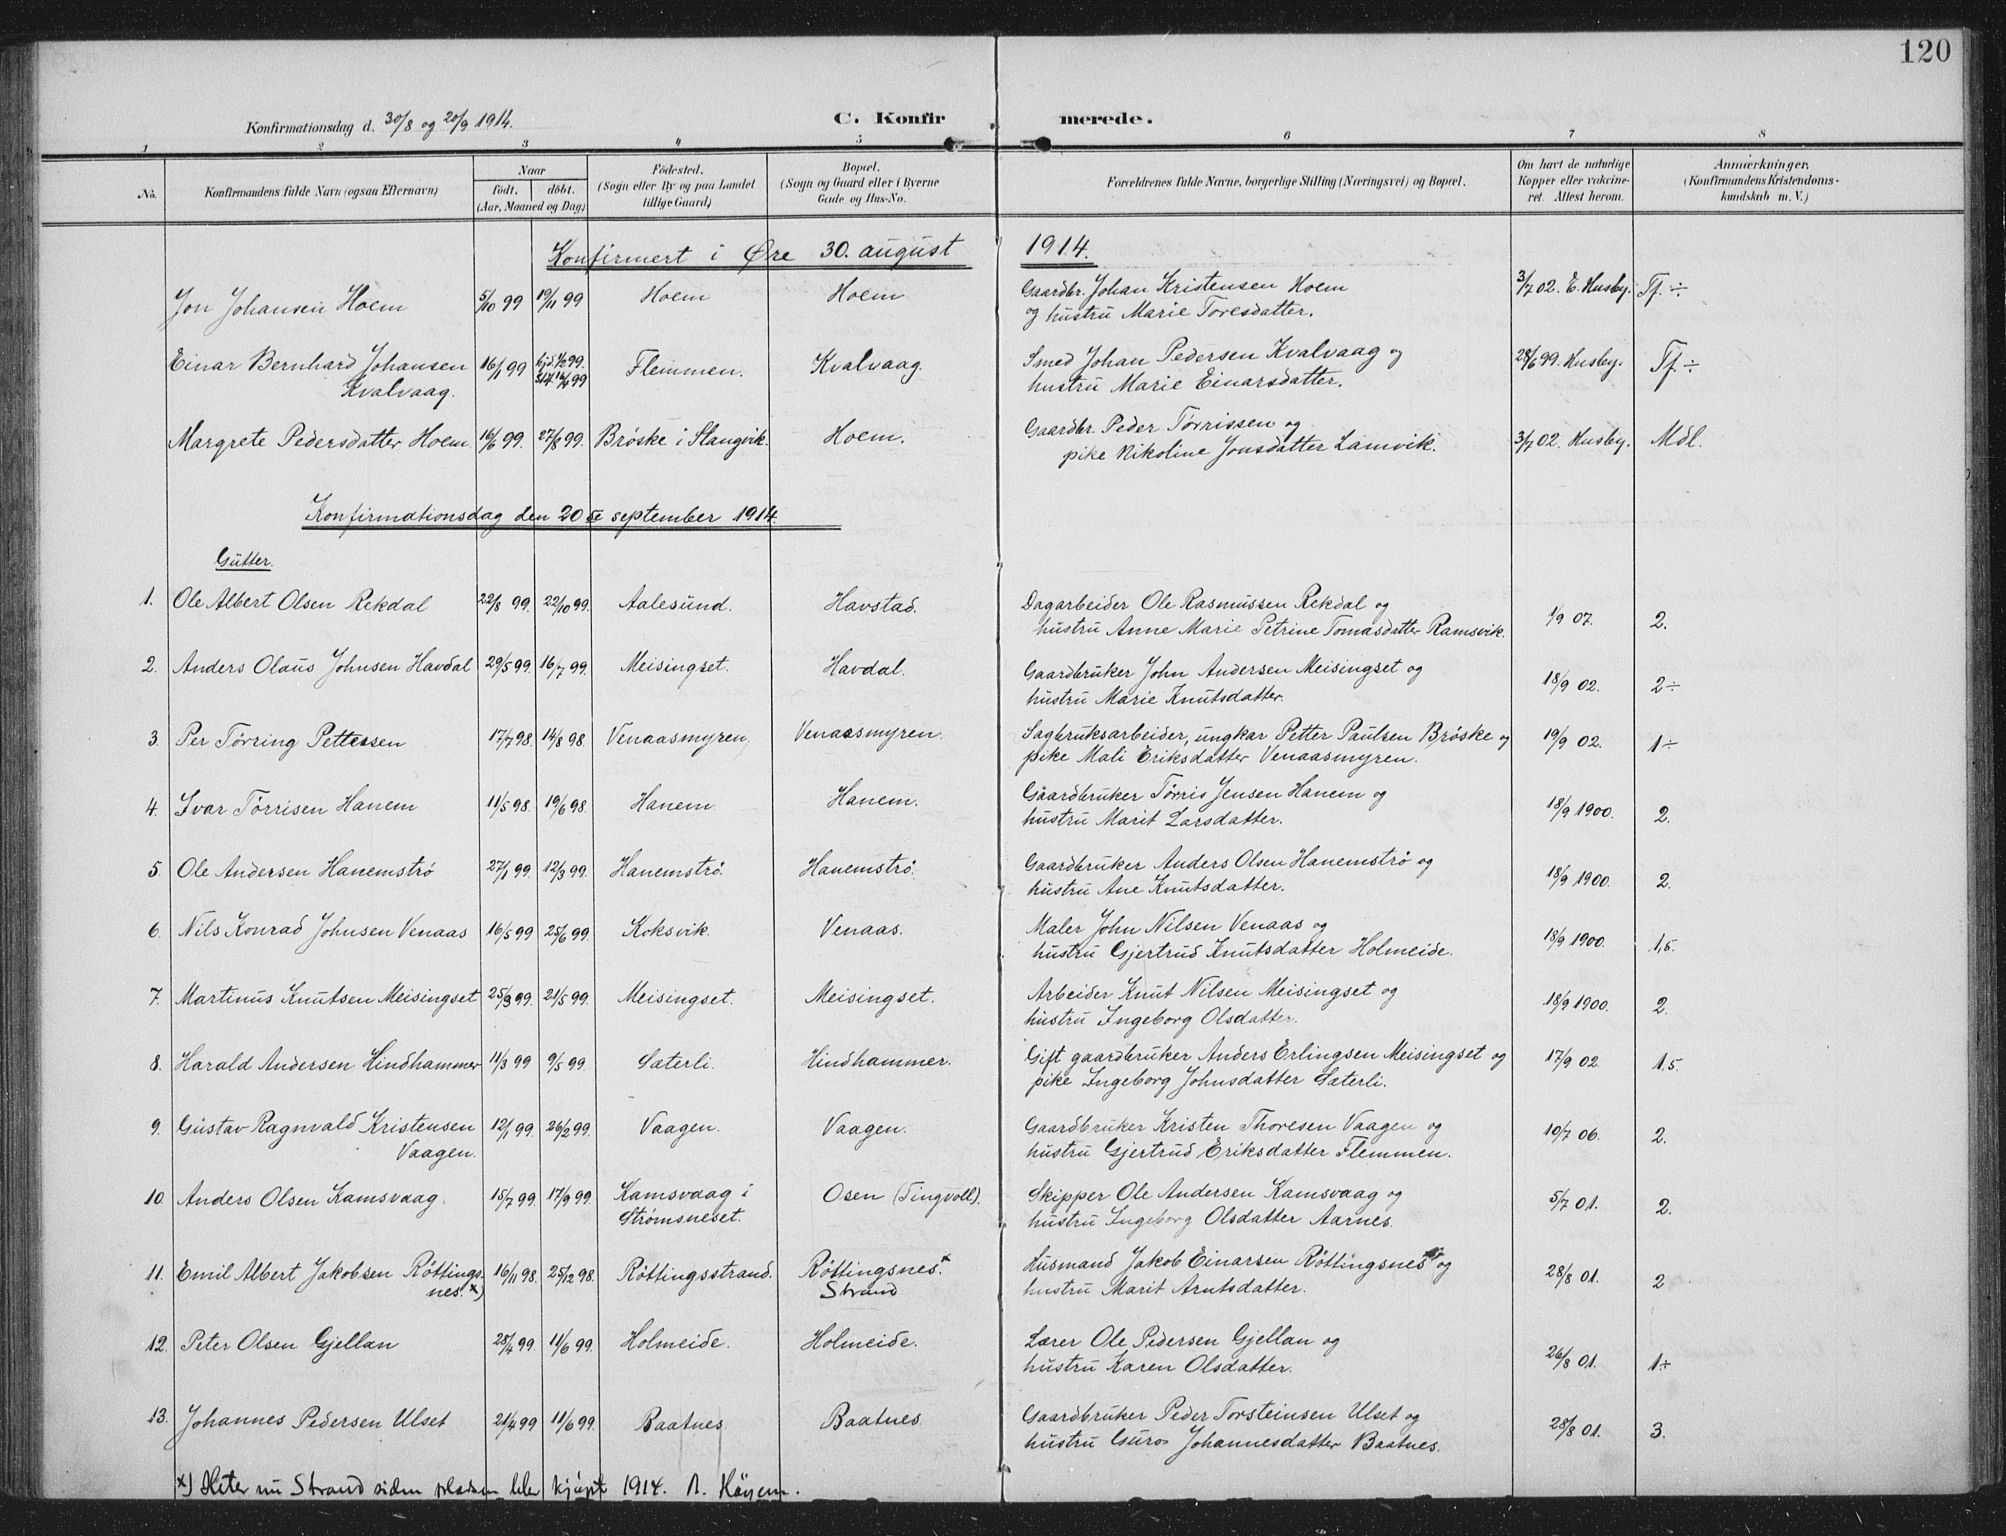 120
Konfirmationsdag d. 30/8 og 20/9 1914.
C. Konfirmerede.
1 2 3 4 5 6 7 8
No. Konfirmandens fulde Navn (ogsaa Efternavn) Naar født, døbt. (Aar, Maaned og Dag) Fødested. (Sogn eller By og paa Landet tillige Gaard) Bopæl. (Sogn og Gaard eller i Byerne Gade og Hus-No. Forældrenes fulde Navne, borgerlige Stilling (Næringsvei) og Bopæl. Om havt de naturlige Kopper eller vakcineret. Attest herom. Anmærkninger. (Konfirmandens Kristendomskundskab m. V.)
Konfirmert i Øre 30. august 1914.
Jon Johansen Hoem 5/10 99 19/11 99 Hoem Hoem Gaardbr. Johan Kristensen Hoem 3/7 02. E. Husby. Tf. ÷
og hustru Marie Toresdatter.
Einar Bernhard Johansen 16/1 99 Flemmen. Kvalvaag. Smed Johan Pedersen Kvalvaag og 28/6 99. Husby. Tf. ÷
Kvalvaag. hustru Marie Einarsdatter.
Margrete Pedersdatter Hoem 16/6 99. 27/8 99. Brøske i Stangvik. Hoem. Gaardbr. Peder Tørrissen og 3/7 02. Husby. Mdl.
pike Nikoline Jonsdatter Lamvik.
Konfirmationsdag den 20de september 1914.
Gutter.
1. Ole Albert Olsen Rekdal 22/8 99. 22/10 99. Aalesund. Havstad. Dagarbeider Ole Rasmussen Rekdal og 1/9 07. 2.
hustru Anne Marie Petrine Tomasdatter Ramsvik.
2. Anders Olaus Johnsen Havdal 29/5 99. 16/7 99. Meisingset. Havdal. Gaardbruker John Andersen Meisingset og 18/9 02. 2÷
hustru Marie Knutsdatter.
3. Per Tørring Pettersen 17/7 98. 14/8 98. Venaasmyren, Venaasmyren. Sagbruksarbeider, ungkar Petter Paulsen Brøske og 19/9 02. 1÷
pike Mali Eriksdatter Venaasmyren.
4. Ivar Tørrisen Hanem 11/5 98. 19/6 98. Hanem Hanem. Gaardbruker Tørris Jensen Hanem og 18/9 1900. 2.
hustru Marit Larsdatter.
5. Ole Andersen Hanemstrø 27/1 99. 12/3 99. Hanemstrø. Hanemstrø. Gaardbruker Anders Olsen Hanemstrø og 18/9 1900. 2.
hustru Ane Knutsdatter.
6. Nils Konrad Johnsen Venaas 16/5 99 25/6 99. Koksvik. Venaas. Maler John Nilsen Venaas og 18/9 1900. 1,5.
hustru Gjertrud Knutsdatter Holmeide.
7. Martinus Knutsen Meisingset 25/3 99. 21/5 99. Meisingset. Meisingset. Arbeider Knut Nilsen Meisingset og 18/9 1900. 2.
hustru Ingeborg Olsdatter.
8. Harald Andersen Hindhammer 11/3 99 9/5 99. Sæterli. Hindhammer. Gift gaardbruker Anders Erlingsen Meisingset og 17/9 02. 1,5.
pike Ingeborg Johnsdatter Sæterli.
9. Gustav Ragnvald Kristensen 12/1 99. 26/2 99. Vaagen. Vaagen. Gaardbruker Kristen Thoresen Vaagen og 10/7 06. 2.
Vaagen. hustru Gjertrud Eriksdatter Flemmen.
10. Anders Olsen Kamsvaag. 15/7 99. 17/9 99. Kamsvaag i Osen (Tingvoll). Skipper Ole Andersen Kamsvaag og 5/7 01. 2.
Strømsneset. hustru Ingeborg Olsdatter Aarnes.
11. Emil Albert Jakobsen Røttings- 16/11 98. 25/12 98. Røttingsstrand. Røttingsnes. x Husmand Jakob Einarsen Røttingsnes x og 28/8 01. 2
nes. x) Strand hustru Marit Arntsdatter.
12. Peter Olsen Gjellan 28/4 99. 11/6 99. Holmeide. Holmeide. Lærer Ole Pedersen Gjellan og 26/8 01. 1÷
hustru Karen Olsdatter.
13. Johannes Pedersen Ulset 21/4 99 11/6 99. Baatnes. Baatnes. Gaardbruker Peder Torsteinsen Ulset og 28/8 01. 3.
hustru Guro Johannesdatter Baatnes.
x) Heter nu Strand siden pladsen blev kjøpt 1914.